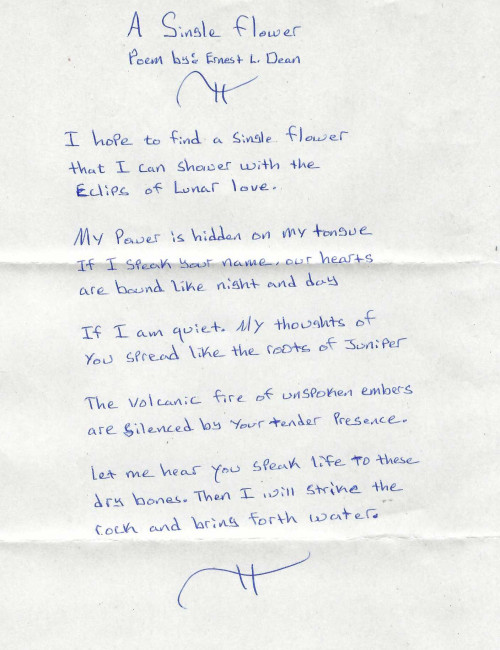 A Single Flower
Poem by: Ernest L. Dean
I hope to find a single flower
that I can shower with the
Eclips of Lunar love.
My Power is hidden on my tongue
If I speak your name, our hearts
are bound like night and day
If I am quiet. My thoughts of
You spread like the roots of Juniper
The volcanic fire of unspoken embers
are silenced by Your tender Presence.
Let me hear you speak life to these
dry bones. Then I will strike the
rock and bring forth water.